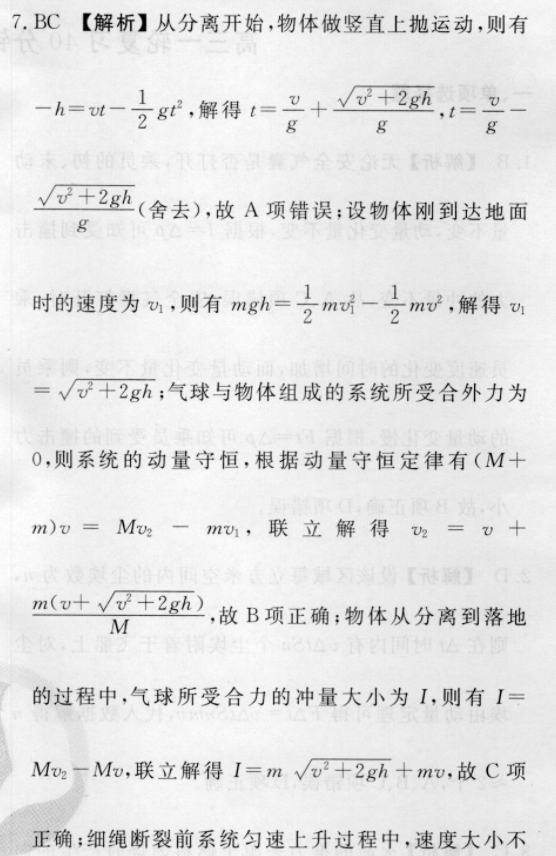 7. BC 【解析】从分离开始,物体做竖直上抛运动,则有
-h=vt-\frac{1}{2}gt²,解得 t=\frac{v}{g}+\frac{\sqrt{v²+2gh}}{g},t=\frac{v}{g}-
\frac{\sqrt{v²+2gh}}{g}(舍去),故 A 项错误;设物体刚到达地面
时的速度为 v₁,则有 mgh=\frac{1}{2}mv₁²-\frac{1}{2}mv²,解得 v₁
=\sqrt{v²+2gh};气球与物体组成的系统所受合外力为
0,则系统的动量守恒,根据动量守恒定律有(M+
m)v = Mv₂ - mv₁, 联立解得 v₂ = v +
\frac{m(v+\sqrt{v²+2gh})}{M},故 B 项正确;物体从分离到落地
的过程中,气球所受合力的冲量大小为 I,则有 I=
Mv₂-Mv,联立解得 I=m\sqrt{v²+2gh}+mv,故 C 项
正确;细绳断裂前系统匀速上升过程中,速度大小不